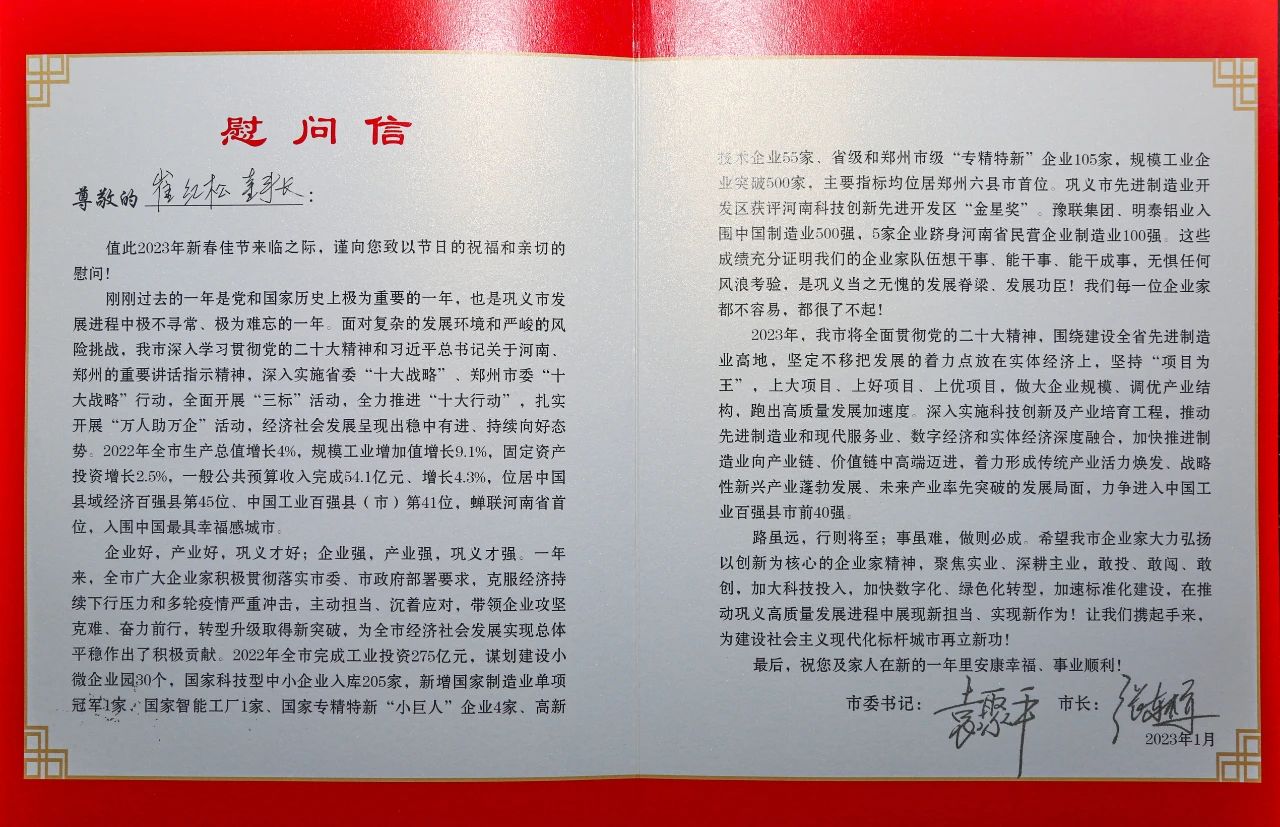 慰问信
尊敬的 崔红松 董事长：
值此2023年新春佳节来临之际，谨向您致以节日的祝福和亲切的
慰问！
刚刚过去的一年是党和国家历史上极为重要的一年，也是巩义市发
展进程中极不寻常、极为难忘的一年。面对复杂的发展环境和严峻的风
险挑战，我市深入学习贯彻党的二十大精神和习近平总书记关于河南、
郑州的重要讲话指示精神，深入实施省委“十大战略”、郑州市委“十
大战略”行动，全面开展“三标”活动，全力推进“十大行动”，扎实
开展“万人助万企”活动，经济社会发展呈现出稳中有进、持续向好态
势。2022年全市生产总值增长4%，规模工业增加值增长9.1%，固定资产
投资增长2.5%，一般公共预算收入完成54.1亿元、增长4.3%，位居中国
县域经济百强县第45位、中国工业百强县（市）第41位，蝉联河南省首
位，入围中国最具幸福感城市。
企业好，产业好，巩义才好；企业强，产业强，巩义才强。一年
来，全市广大企业家积极贯彻落实市委、市政府部署要求，克服经济持
续下行压力和多轮疫情严重冲击，主动担当、沉着应对，带领企业攻坚
克难、奋力前行，转型升级取得新突破，为全市经济社会发展实现总体
平稳作出了积极贡献。2022年全市完成工业投资275亿元，谋划建设小
微企业园30个，国家科技型中小企业入库205家，新增国家制造业单项
冠军1家、国家智能工厂1家、国家专精特新“小巨人”企业4家、高新
技术企业55家、省级和郑州市级“专精特新”企业105家，规模工业企
业突破500家，主要指标均位居郑州六县市首位。巩义市先进制造业开
发区获评河南科技创新先进开发区“金星奖”。豫联集团、明泰铝业入
围中国制造业500强，5家企业跻身河南省民营企业制造业100强。这些
成绩充分证明我们的企业家队伍想干事、能干事、能干成事，无惧任何
风浪考验，是巩义当之无愧的发展脊梁、发展功臣！我们每一位企业家
都不容易，都很了不起！
2023年，我市将全面贯彻党的二十大精神，围绕建设全省先进制造
业高地，坚定不移把发展的着力点放在实体经济上，坚持“项目为
王”，上大项目、上好项目、上优项目，做大企业规模、调优产业结
构，跑出高质量发展加速度。深入实施科技创新及产业培育工程，推动
先进制造业和现代服务业、数字经济和实体经济深度融合，加快推进制
造业向产业链、价值链中高端迈进，着力形成传统产业活力焕发、战略
性新兴产业蓬勃发展、未来产业率先突破的发展局面，力争进入中国工
业百强县市前40强。
路虽远，行则将至；事虽难，做则必成。希望我市企业家大力弘扬
以创新为核心的企业家精神，聚焦实业、深耕主业，敢投、敢闯、敢
创，加大科技投入，加快数字化、绿色化转型，加速标准化建设，在推
动巩义高质量发展进程中展现新担当、实现新作为！让我们携起手来，
为建设社会主义现代化标杆城市再立新功！
最后，祝您及家人在新的一年里安康幸福、事业顺利！
市委书记：袁聚平 市长：
2023年1月